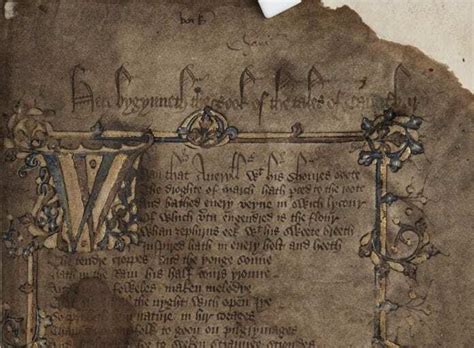 Here bygynneth the Book of the tales of Caunterbury
Whan that Aueryll wt his shoures soote
The droghte of March hath perced to the roote
And bathed euery veyne in swich lycour
Of which vtu engendred is the flour
Whan zephirus eek wt his sweete breeth
Inspired hath in euery holt and heeth
The tendre croppes and the yonge sonne
Hath in the Ram his half cours yronne
foweles maken melodye
al the nyght with open Iye
nature in hir corages
folk to goon on pilgrymages
to seken straunge strondes